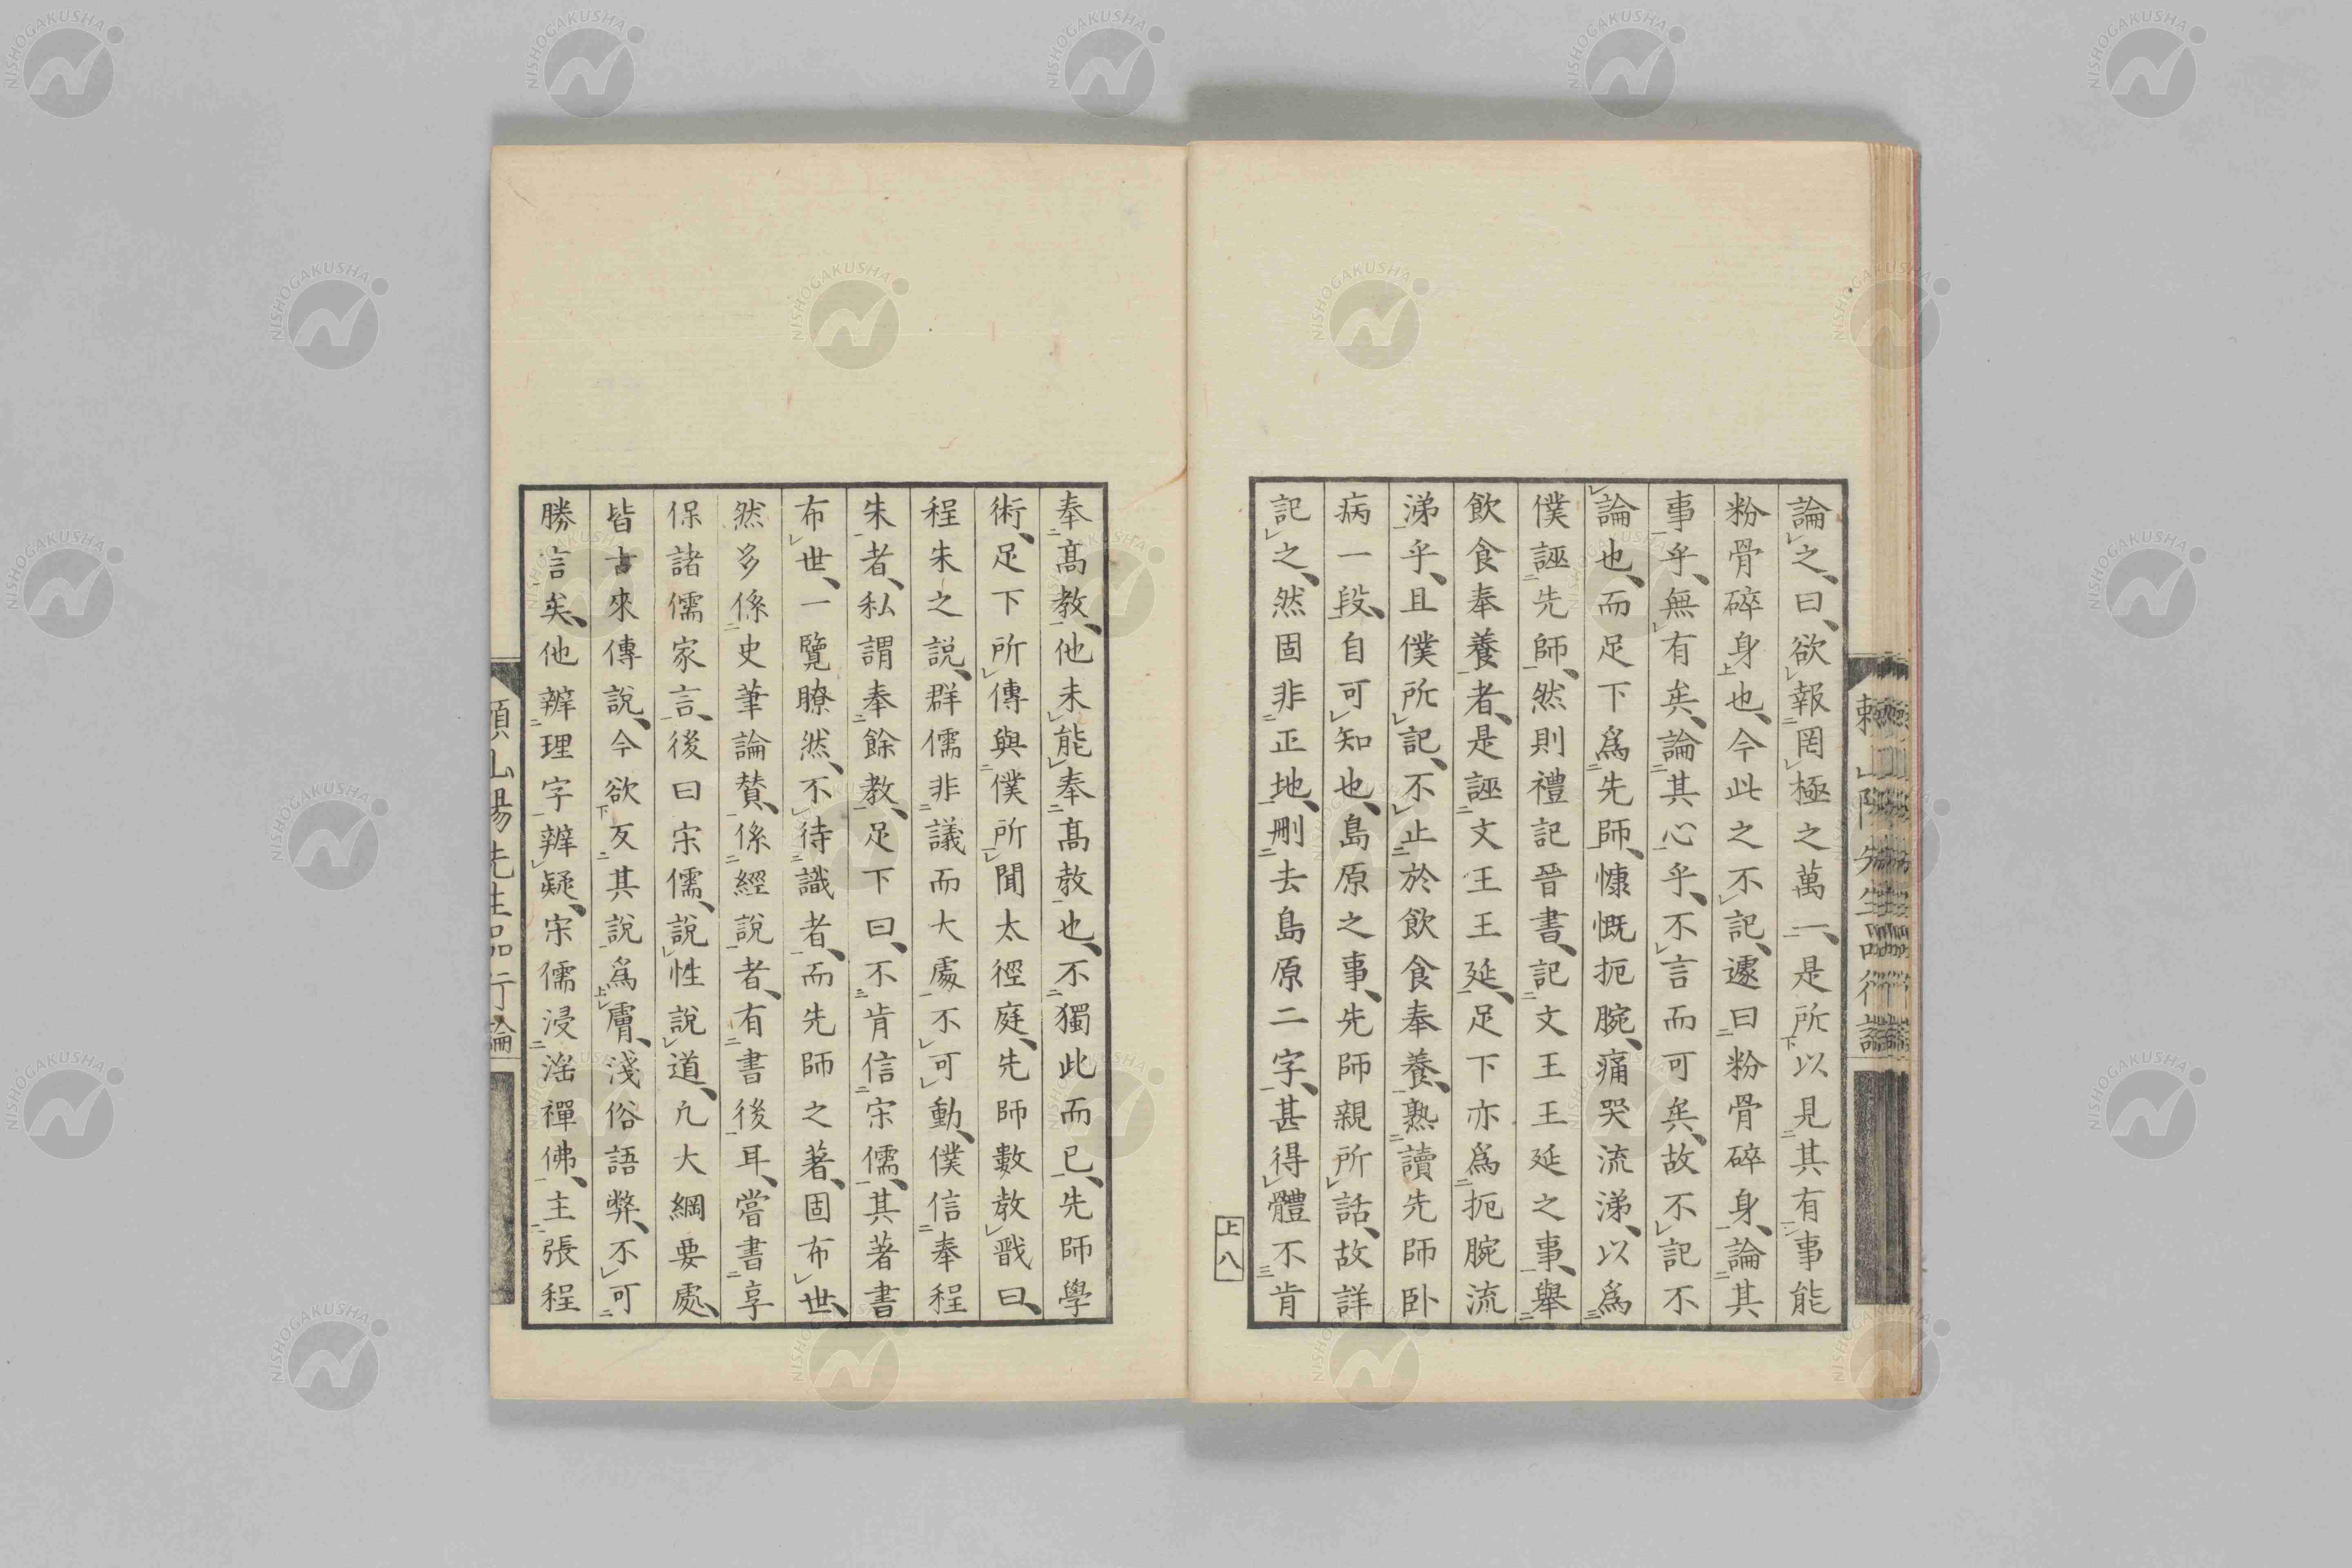 論之、曰、欲報罔極之萬一、是所以見其有事能
粉骨碎身也、今此之不記、遽曰粉骨碎身、論其
事乎、無有矣、論其心乎、不言而可矣、故不記不
論也、而足下爲先師、慷慨扼腕、痛哭流涕、以爲
僕誣先師、然則禮記晉書、記文王王延之事、舉
飮食奉養者、是誣文王王延、足下亦爲扼腕流
涕乎、且僕所記、不止於飮食奉養、熟讀先師臥
病一段、自可知也、島原之事、先師親所話、故詳
記之、然固非正地、刪去島原二字、甚得體不肯
上八
奉高教、他未能奉高敎也、不獨此而已、先師學
術、足下所傳與僕所聞太徑庭、先師數敎戬曰、
程朱之說、群儒非議而大處不可動、僕信奉程
朱者、私謂奉餘教、足下曰、不肯信宋儒、其著書
布世、一覽瞭然、不待識者、而先師之著、固布世、
然多係史筆論賛、係經說者、有書後耳、嘗書享
保諸儒家言、後曰宋儒、說性說道、凡大綱要處、
皆古來傳說、今欲反其說爲膚淺俗語弊、不可
勝言矣、他辨理字辨疑、宋儒浸滛禪佛、主張程
賴山陽先生品行論